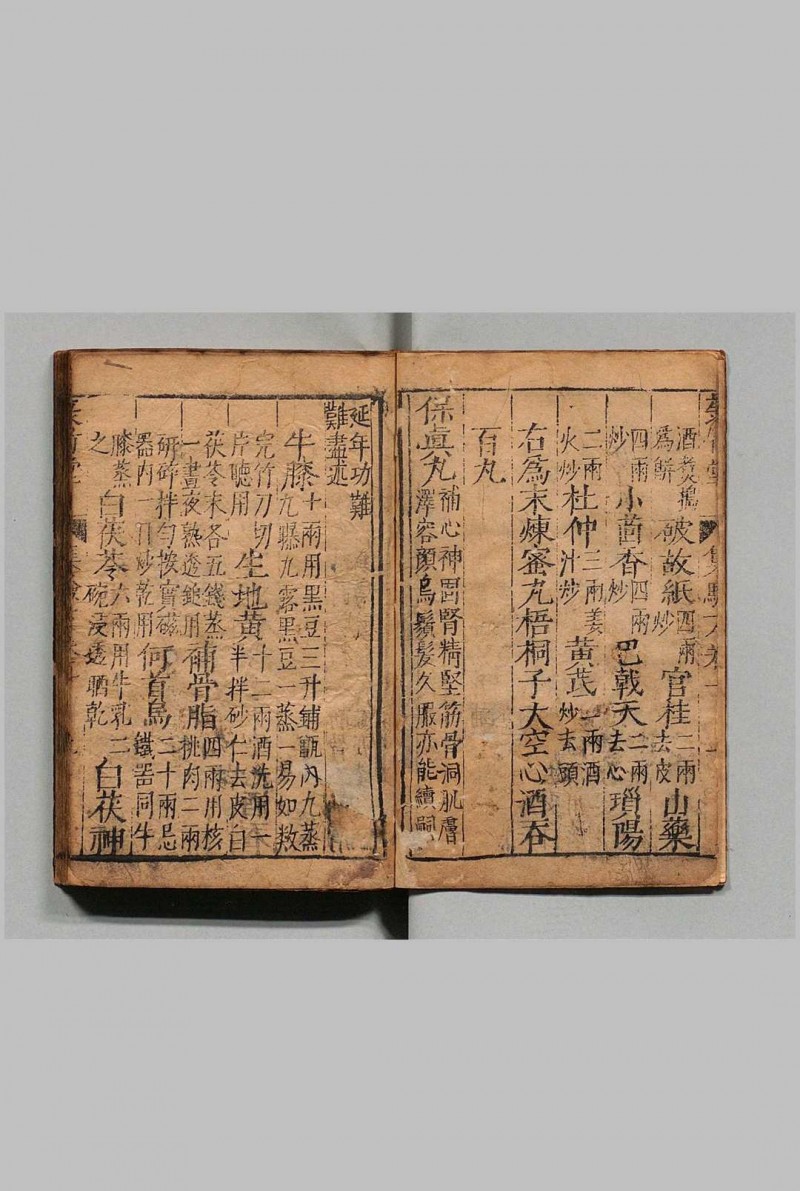 酒煑搗爲餅破故紙四兩炒官桂二兩去皮山藥
四兩炒小茴香四兩炒巴戟天二兩去心瑣陽
二兩火炒杜仲三兩姜汁炒黃芪二兩酒炒去頭
右爲末煉蜜丸梧桐子大空心酒吞
百丸
保眞丸補心神固腎精堅筋骨洞肌膚澤容顔烏鬚髮久服亦能續嗣
延年功難難盡述
牛膝十兩用黑豆三升鋪甑內九蒸九曝九露黑豆一蒸一易如救
完竹刀切片聽用生地黃十二兩酒洗用一半拌砂仁去皮白
茯苓末各五錢蒸一晝夜熟透鋑用補骨脂四兩用核桃肉二兩
研碎拌勻按實磁器內一日炒乾用何首烏二十兩忌鐵器同牛
膝蒸之白茯苓六兩用牛乳二碗浸透晒乾白茯神